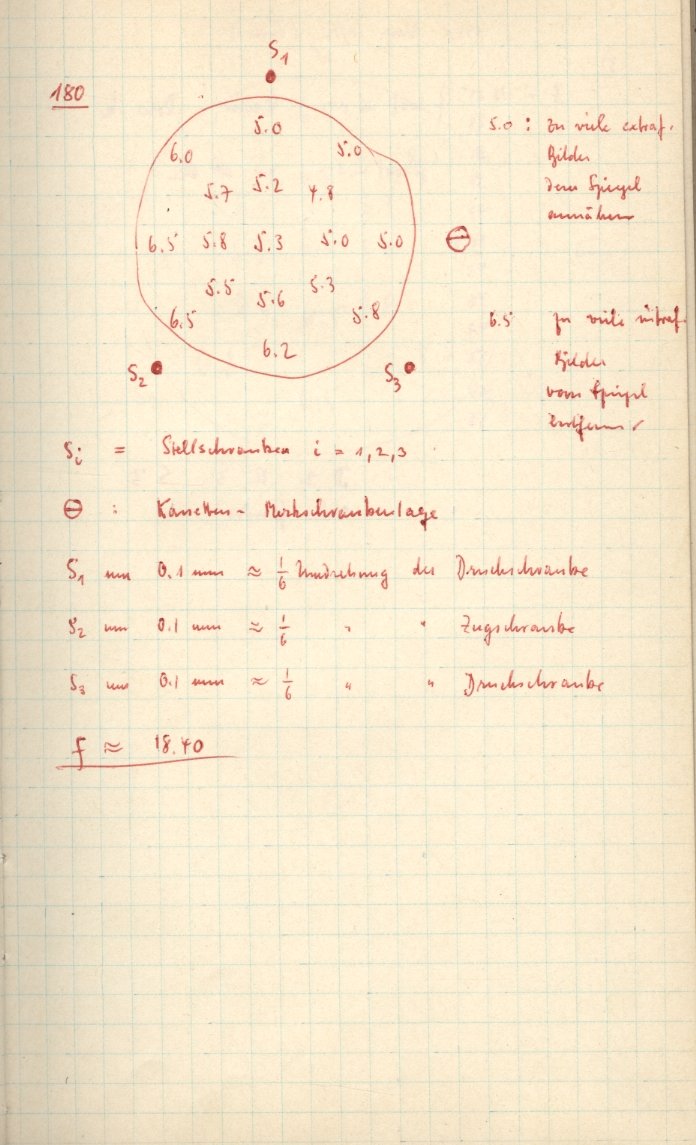 S₁
180
5.0
6.0 5.0
5.7 5.2 4.8
6.5 5.8 5.3 5.0 5.0
5.5 5.6 5.3
6.5 5.8
6.2
S₂ S₃
5.0 : zu viele extraf.
Bilder
dem Spiegel
annähern
6.5 zu viele intraf.
Bilder
vom Spiegel
entfernen
Sᵢ = Stellschrauben i = 1, 2, 3
⊖ : Kassetten - Merkschraubenlage
S₁ um 0.1 mm ≈ 1/6 Umdrehung der Druckschraube
S₂ um 0.1 mm ≈ 1/6 " " Zugschraube
S₃ um 0.1 mm ≈ 1/6 " " Druckschraube
f ≈ 18.40